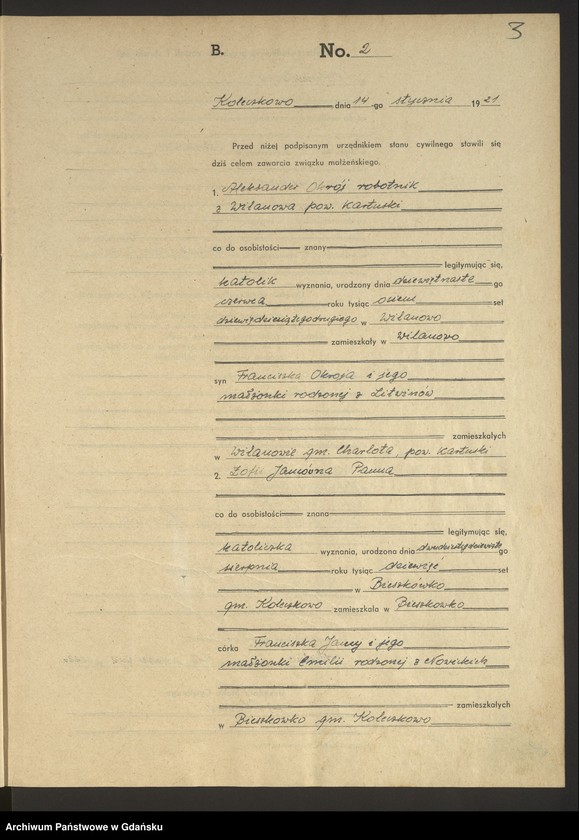 3
B. No. 2
Koleczkowo dnia 14-go stycznia 1921
Przed niżej podpisanym urzędnikiem stanu cywilnego stawili się
dziś celem zawarcia związku małżeńskiego.
1. Aleksander Okrój robotnik
z Wilanowa pow. Kartuski
co do osobistości znany
legitymując się,
katolik wyznania, urodzony dnia dziewiętnaste-go
czerwca roku tysiąc osiem set
dziewięćdziesiątegodrugiego w Wilanowo
zamieszkały w Wilanowo
syn Franciszka Okroja i jego
małżonki rodzonej z Litwinów
zamieszkałych
w Wilanowie gm. Charlota, pow. Kartuski
2. Panna
co do osobistości znana
legitymując się,
katoliczka wyznania, urodzona dnia go
sierpnia roku tysiąc dziewięć set
w Bieszkowko
gm. Koleczkowo zamieszkała w Bieszkowko
córka Franciszka i jego
małżonki Emilii rodzonej z Nowickich
zamieszkałych
w Bieszkowko gm. Koleczkowo
Archiwum Państwowe w Gdańsku